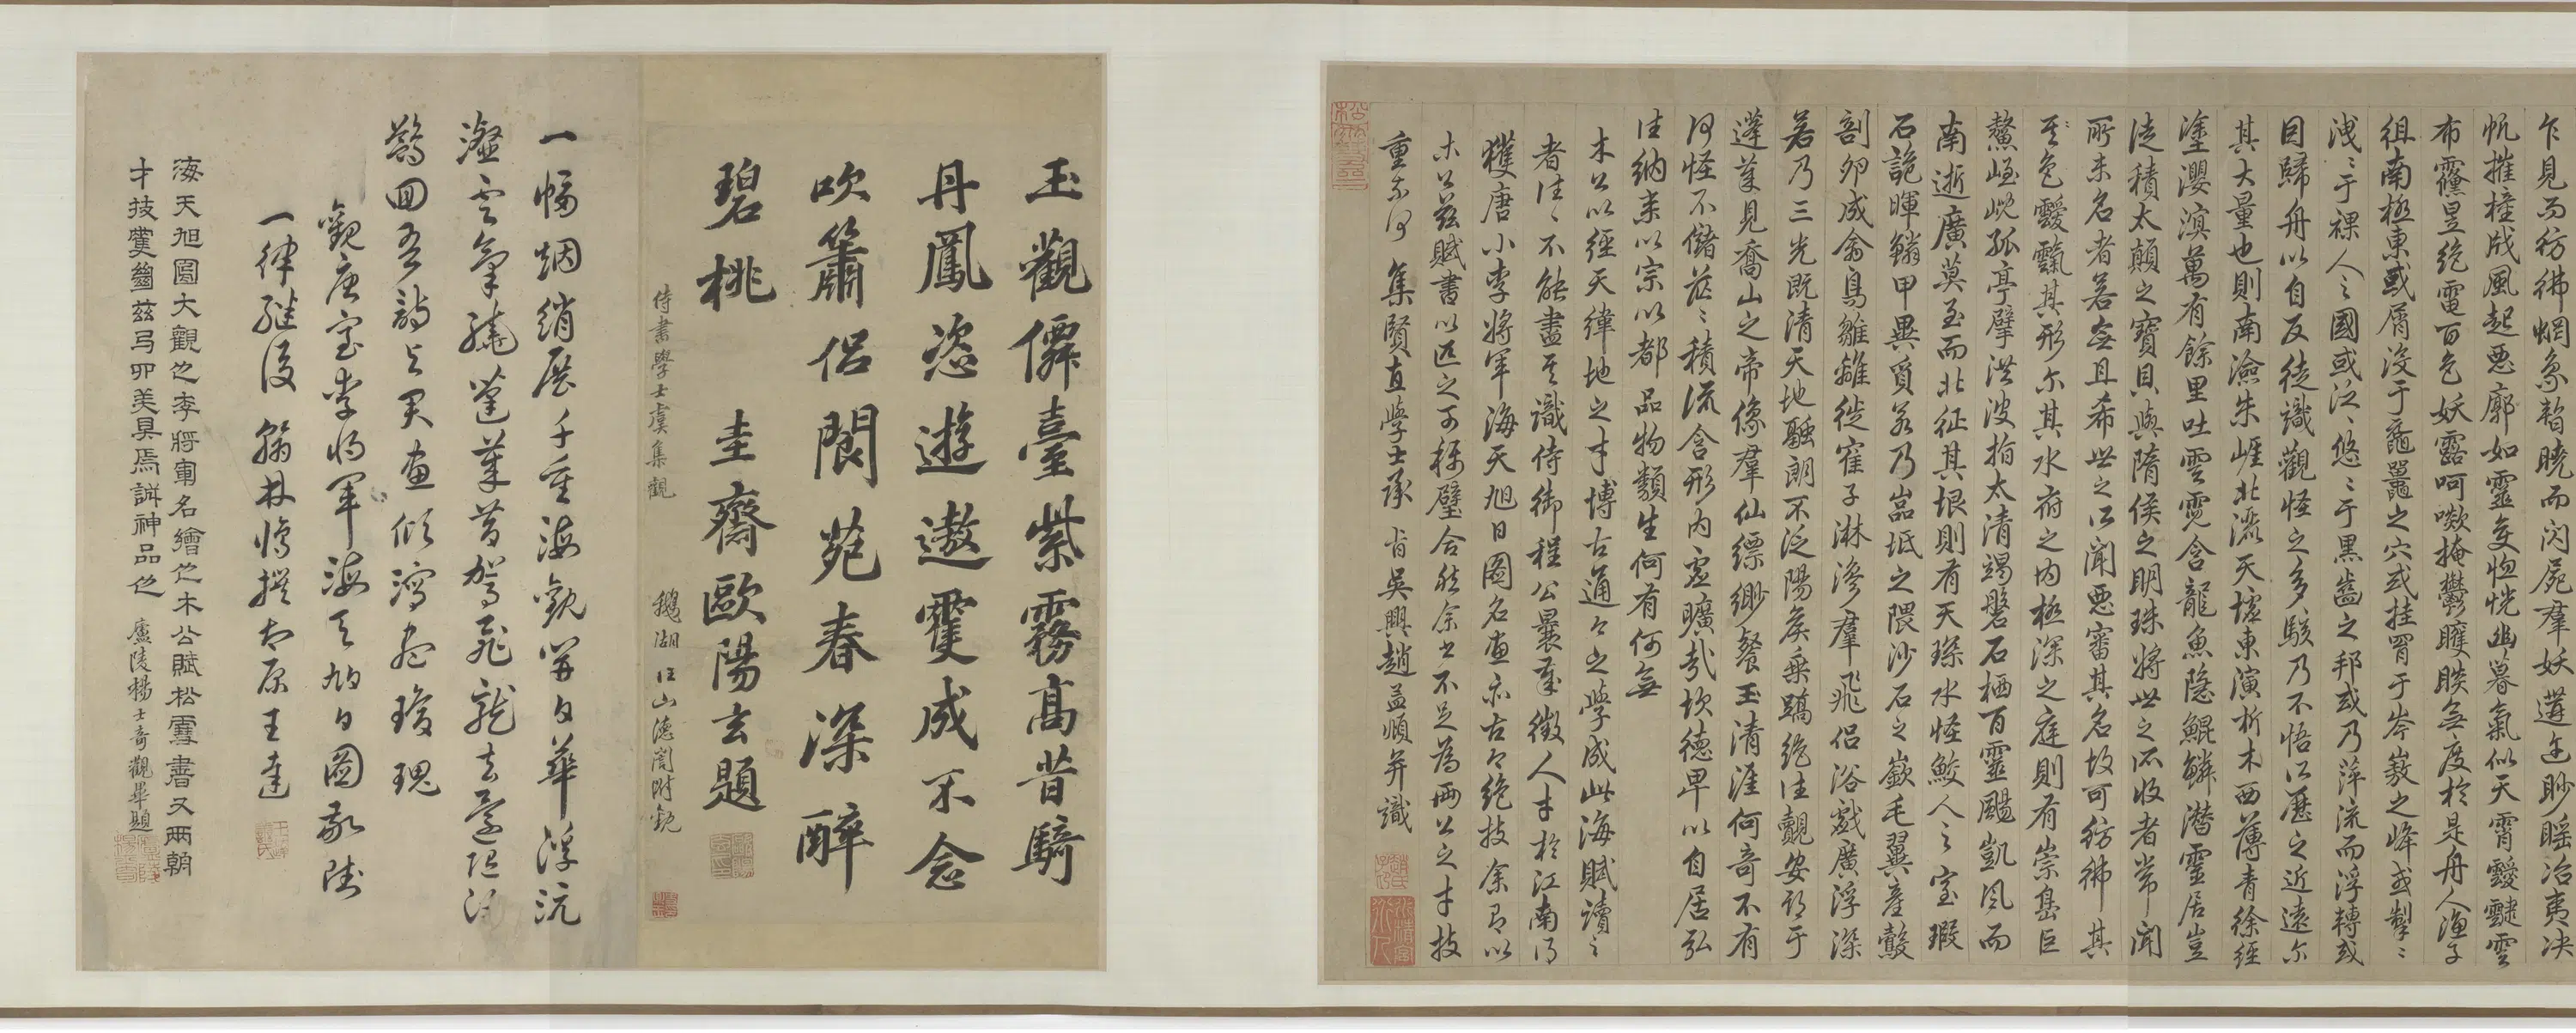 乍見而彷彿烱象暫曉而闪屍羣妖遘迕眇䁘冶夷决
帆摧橦戕風起惡廓如靈变惚恍幽暮氣似天霄靉靆雲
布靃昱絶電百色妖露呵㰲掩鬱矆睒無度於是舟人漁子
徂南極東或屑沒于黿鼉之穴或挂罥于岑嶅之峰或掣〻
洩〻于裸人之國或泛〻悠〻于黑齒之邦或乃萍流而浮轉或
因歸舟以自反徒識觀怪之多駭乃不悟所歷之近遠尔
其大量也則南澰朱崖北灑天墟東演析木西薄青徐經
塗瀴溟萬有餘里吐雲霓含龍魚隱鯤鱗潛靈居豈
徒積太顛之寶貝與隋侯之明珠將世之所收者常聞
所未名者若無且希世之所聞惡審其名故可彷彿其
其色靉霼其形尔其水府之内極深之庭則有崇島巨
鰲峌峴孤亭擘洪波指太清竭磐石栖百靈颺凱風而
南逝廣莫至而北征其垠則有天琛水怪鮫人之室瑕
石詭暉鱗甲異質若乃嵓坻之隈沙石之嶔毛翼產鷇
剖卵成禽鳧雛離褷寉子淋滲羣飛侶浴戲廣浮深
若乃三光既清天地融朗不泛陽侯乘蹻絶往覿安期于
蓬萊見喬山之帝像羣仙縹緲餐玉清涯何奇不有
何怪不儲茫〻積流含形内虚曠哉坎德卑以自居弘
往納來以宗以都品物類生何有何無
木公以經天緯地之才博古通今之學成此海賦讀之
者往〻不能盡其識侍御程公曩嘗徵人才於江南得
獲唐小李將軍海天旭日圖名画亦古今絶技余即以
木公茲賦書以匹之可稱璧合然余書不足為兩公之才技
重尔何 集賢直學士承旨吳興趙孟頫并識
玉觀僊臺紫霧高昔騎
丹鳳恣遊遨霎成不念
吹簫侶閬苑春深醉
碧桃 圭齋歐陽玄題
侍書學士虞集觀 鵝湖 江山德誾附觀
一幅烟綃展千重海觀開日華浮沆
瀣雲氣繞蓬萊昔駕飛龍去還隨海
鶴回吾詩與君画傾瀉盡瓊瑰
觀唐室李將軍海天旭日圖敬陸
一律繼後 翰林修撰太原王達
海天旭圖大觀也李將軍名繪也木公賦松雪書又兩朝
才技奠齒茲弓卯美具焉誠神品也 廬陵楊士奇觀畢題